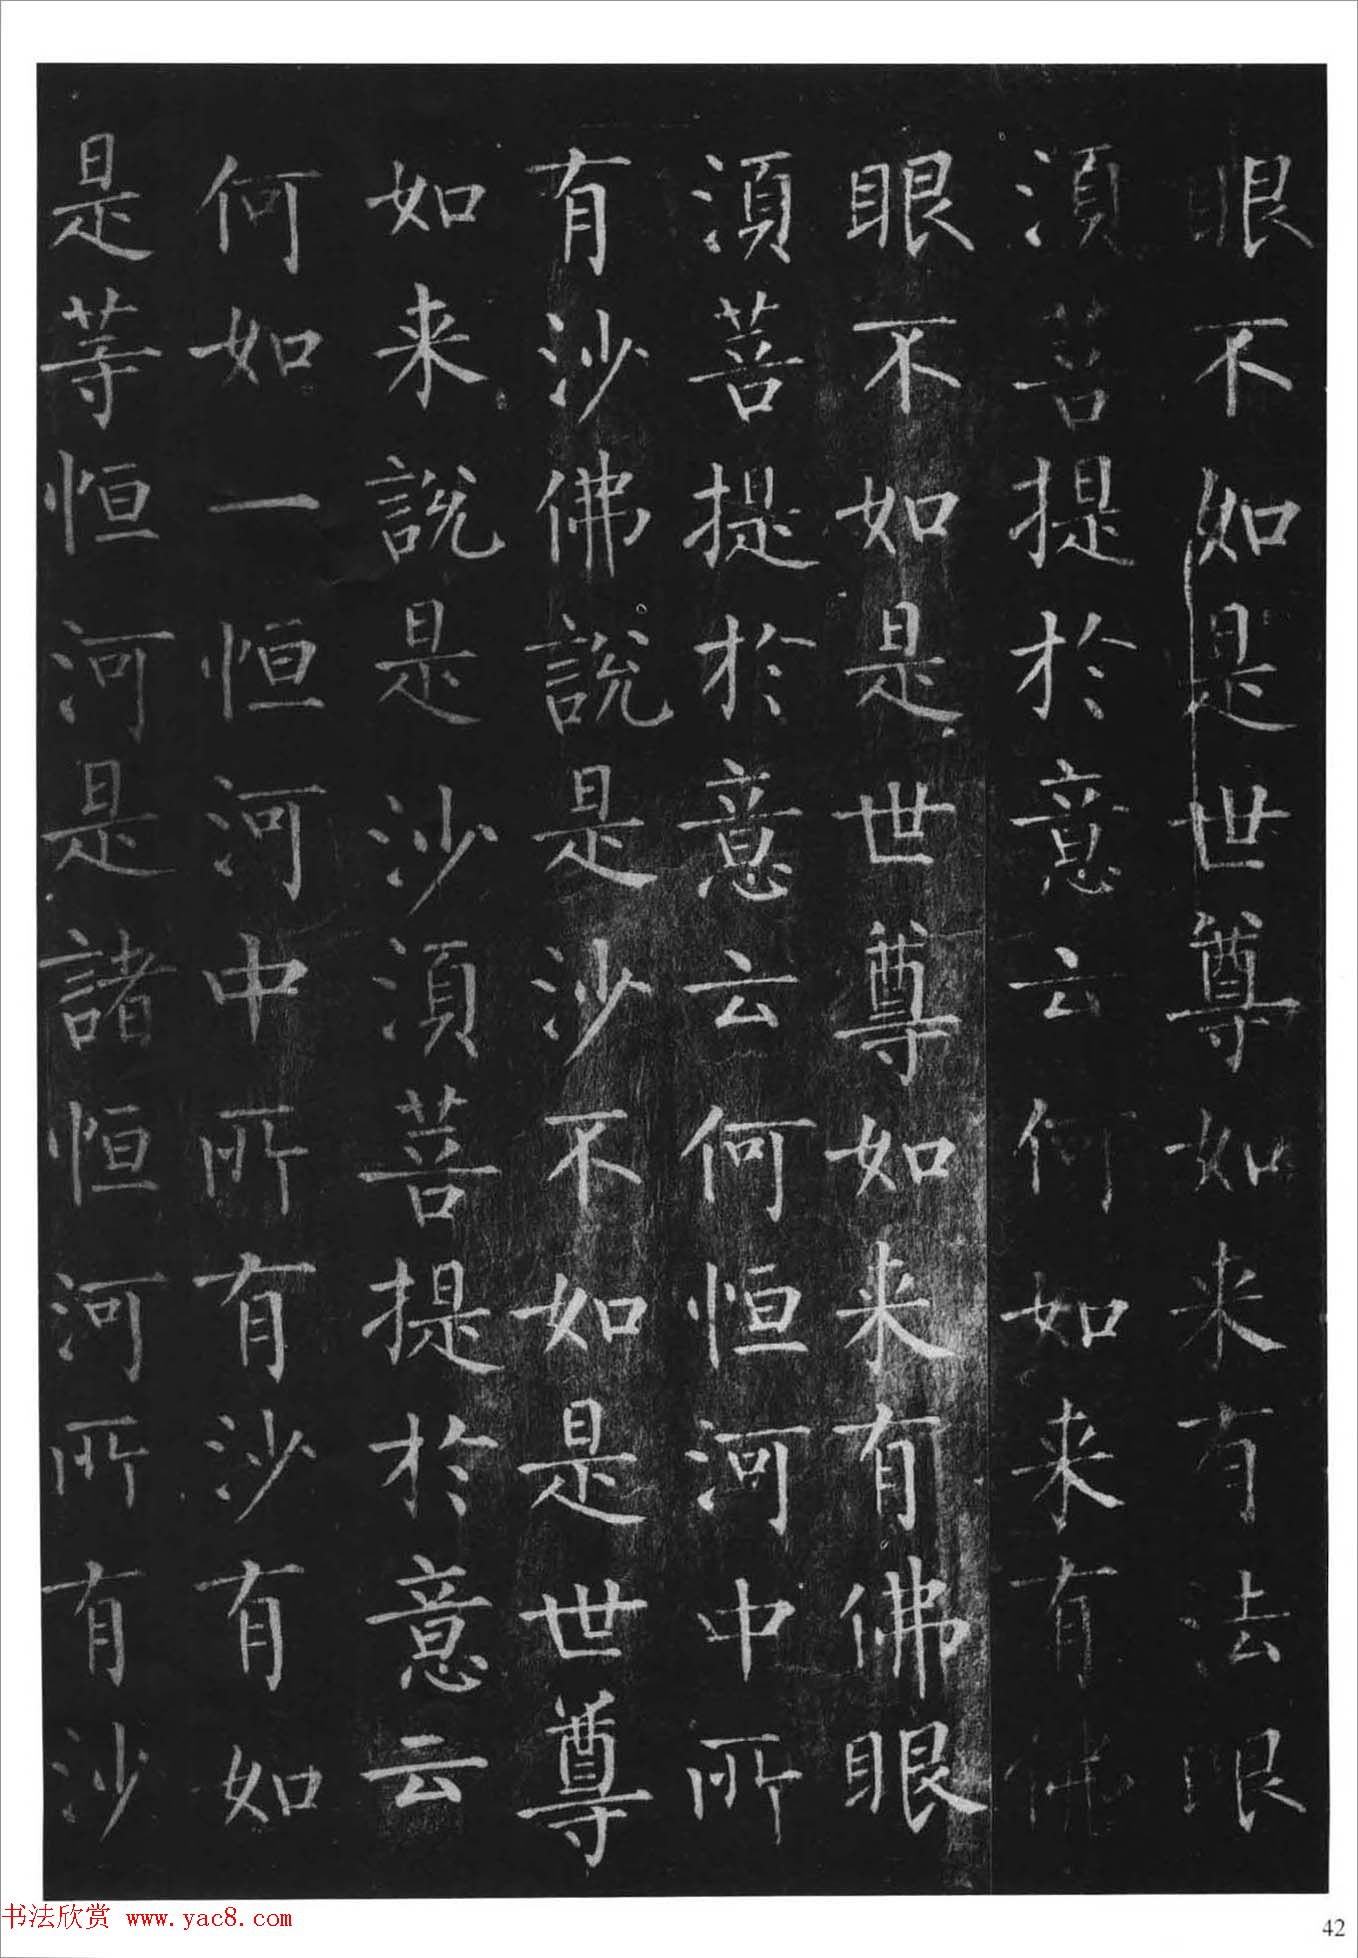 眼不如是世尊如来有法眼
須菩提於意云何如来有佛
眼不如是世尊如来有佛眼
須菩提於意云何恒河中所
有沙佛說是沙不如是世尊
如来說是沙須菩提於意云
何如一恒河中所有沙有如
是等恒河是諸恒河所有沙
书法欣赏 www.yac8.com
42